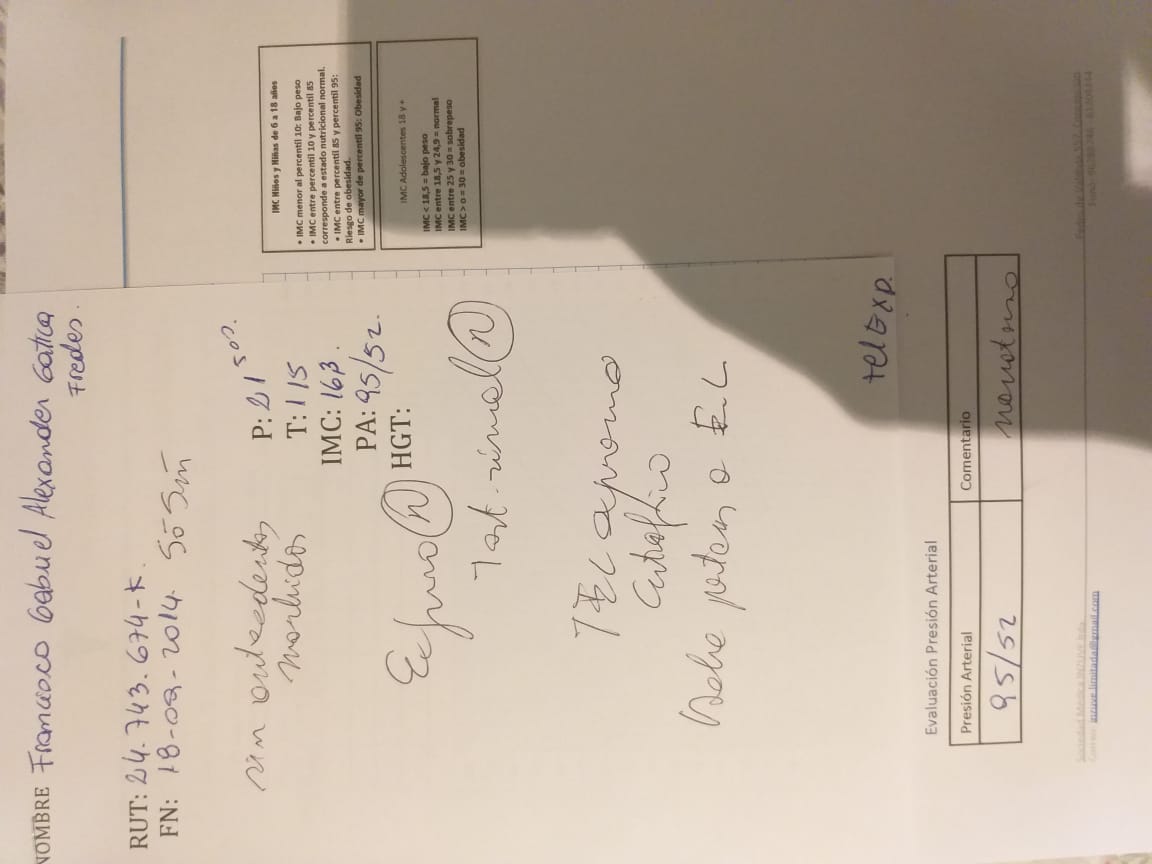 NOMBRE Francisco Gabriel Alexander Gatica
Fredes.
RUT: 24.743.674-K.
FN: 18-09-2014. 5ā 5m
sin antecedentes
morbidos
P: 21 500.
T: 115
IMC: 163.
PA: 95/52.
HGT:
Ex físico (N)
Test. visual (N)
TEL
Eutrófico
Debe
tel Exp.
IMC Niños y Niñas de 6 a 18 años
• IMC menor al percentil 10: Bajo peso
• IMC entre percentil 10 y percentil 85
corresponde a estado nutricional normal.
• IMC entre percentil 85 y percentil 95:
Riesgo de obesidad.
• IMC mayor de percentil 95: Obesidad
IMC Adolescentes 18 y +
IMC < 18,5 = bajo peso
IMC entre 18,5 y 24,9 = normal
IMC entre 25 y 30 = sobrepeso
IMC > o = 30 = obesidad
Evaluación Presión Arterial
Presión Arterial
Comentario
95/52
normotenso
Sociedad Médica INZUVE ltda.
Correo: inzuve.limitada@gmail.com
Pedro de Valdivia 557, Concepción
Fono: